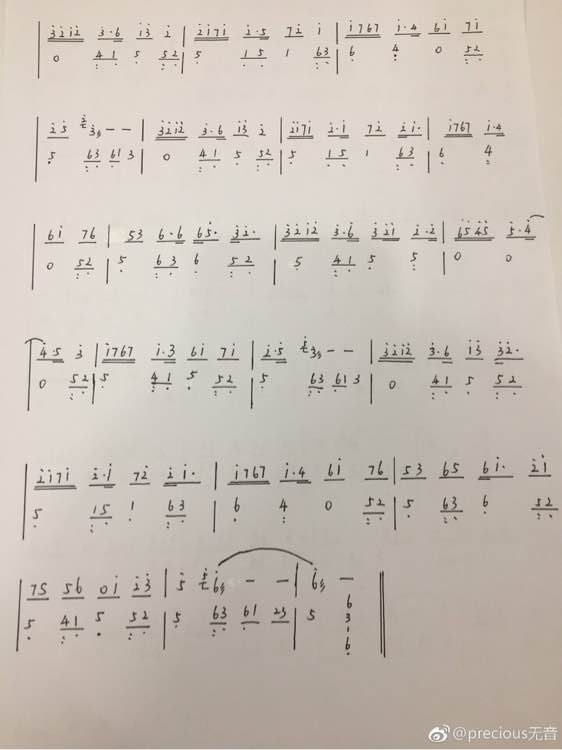 3̇2̇1̇2̇ 3̇·6 1̇3̇ 2̇ | 2̇1̇71̇ 2̇·5 72̇ 1̇ | 1̇767 1̇·4 61̇ 71̇
0 41 5 52 | 5 15 1 63 | 6 4 0 52
2̇5 3̇ – – | 3̇2̇1̇2̇ 3̇·6 1̇3̇ 2̇ | 2̇1̇71̇ 2̇·1̇ 72̇ 2̇1̇· | 1̇767 1̇·4
5 63 61 3 | 0 41 5 52 | 5 15 1 63 | 6 4
61̇ 76 | 53 6·6 65· 3̇2̇· | 3̇2̇1̇2̇ 3̇·6 3̇2̇1̇ 2̇·2̇ | 6̇5̇4̇5̇ 5̇·4̇
0 52 | 5 63 6 52 | 5 41 5 5 | 0 0
4̇·5 3̇ | 1̇767 1̇·3 61̇ 71̇ | 2̇·5 3̇ – – | 3̇2̇1̇2̇ 3̇·6 1̇3̇ 3̇2̇·
0 52 | 5 41 5 52 | 5 63 61 3 | 0 41 5 52
2̇1̇71̇ 2̇·1̇ 72̇ 2̇1̇· | 1̇767 1̇·4 61̇ 76 | 53 65 61̇· 2̇1̇
5 15 1 63 | 6 4 0 52 | 5 63 6 52
75 56 01̇ 2̇3̇ | 5̇ 6̇ – – | 6̇ – ‖
5 41 5 52 | 5 63 61 23 | 5 6
3
1
6
@precious无音